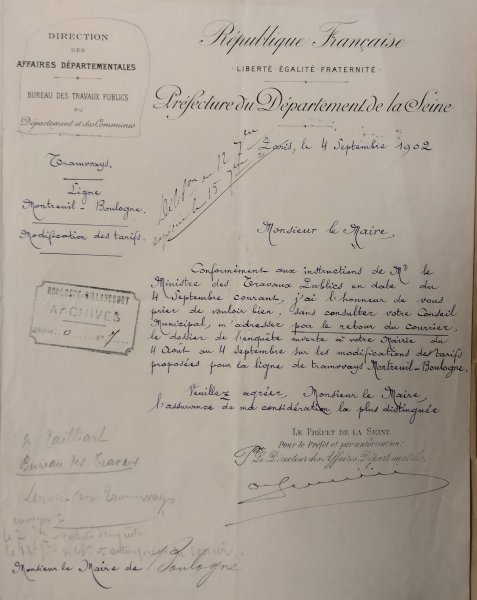 DIRECTION
DES
AFFAIRES DÉPARTEMENTALES
BUREAU DES TRAVAUX PUBLICS
DU
Département et des Communes
République Française
LIBERTÉ-ÉGALITÉ-FRATERNITÉ
Préfecture du Département de la Seine
Paris, le 4 Septembre 1902
Tramways.
Ligne
Montreuil-Boulogne.
Modification des tarifs.
Monsieur le Maire,
BOULOGNE-BILLANCOURT
ARCHIVES
Conformément aux instructions de Mr. le
Ministre des Travaux Publics en date du
4 Septembre courant, j'ai l'honneur de vous
prier de vouloir bien, sans consulter votre Conseil
Municipal, m'adresser par le retour du courrier,
le dossier de l'enquête ouverte à votre Mairie du
4 Août au 4 Septembre sur les modifications des tarifs
proposées pour la ligne de tramways Montreuil-Boulogne.
Veuillez agréer, Monsieur le Maire,
l'assurance de ma considération la plus distinguée
LE PRÉFET DE LA SEINE
Pour le Préfet et par autorisation:
Le Directeur des Affaires Départementales
Bureau des Travaux
des Tramways
Monsieur le Maire de Boulogne